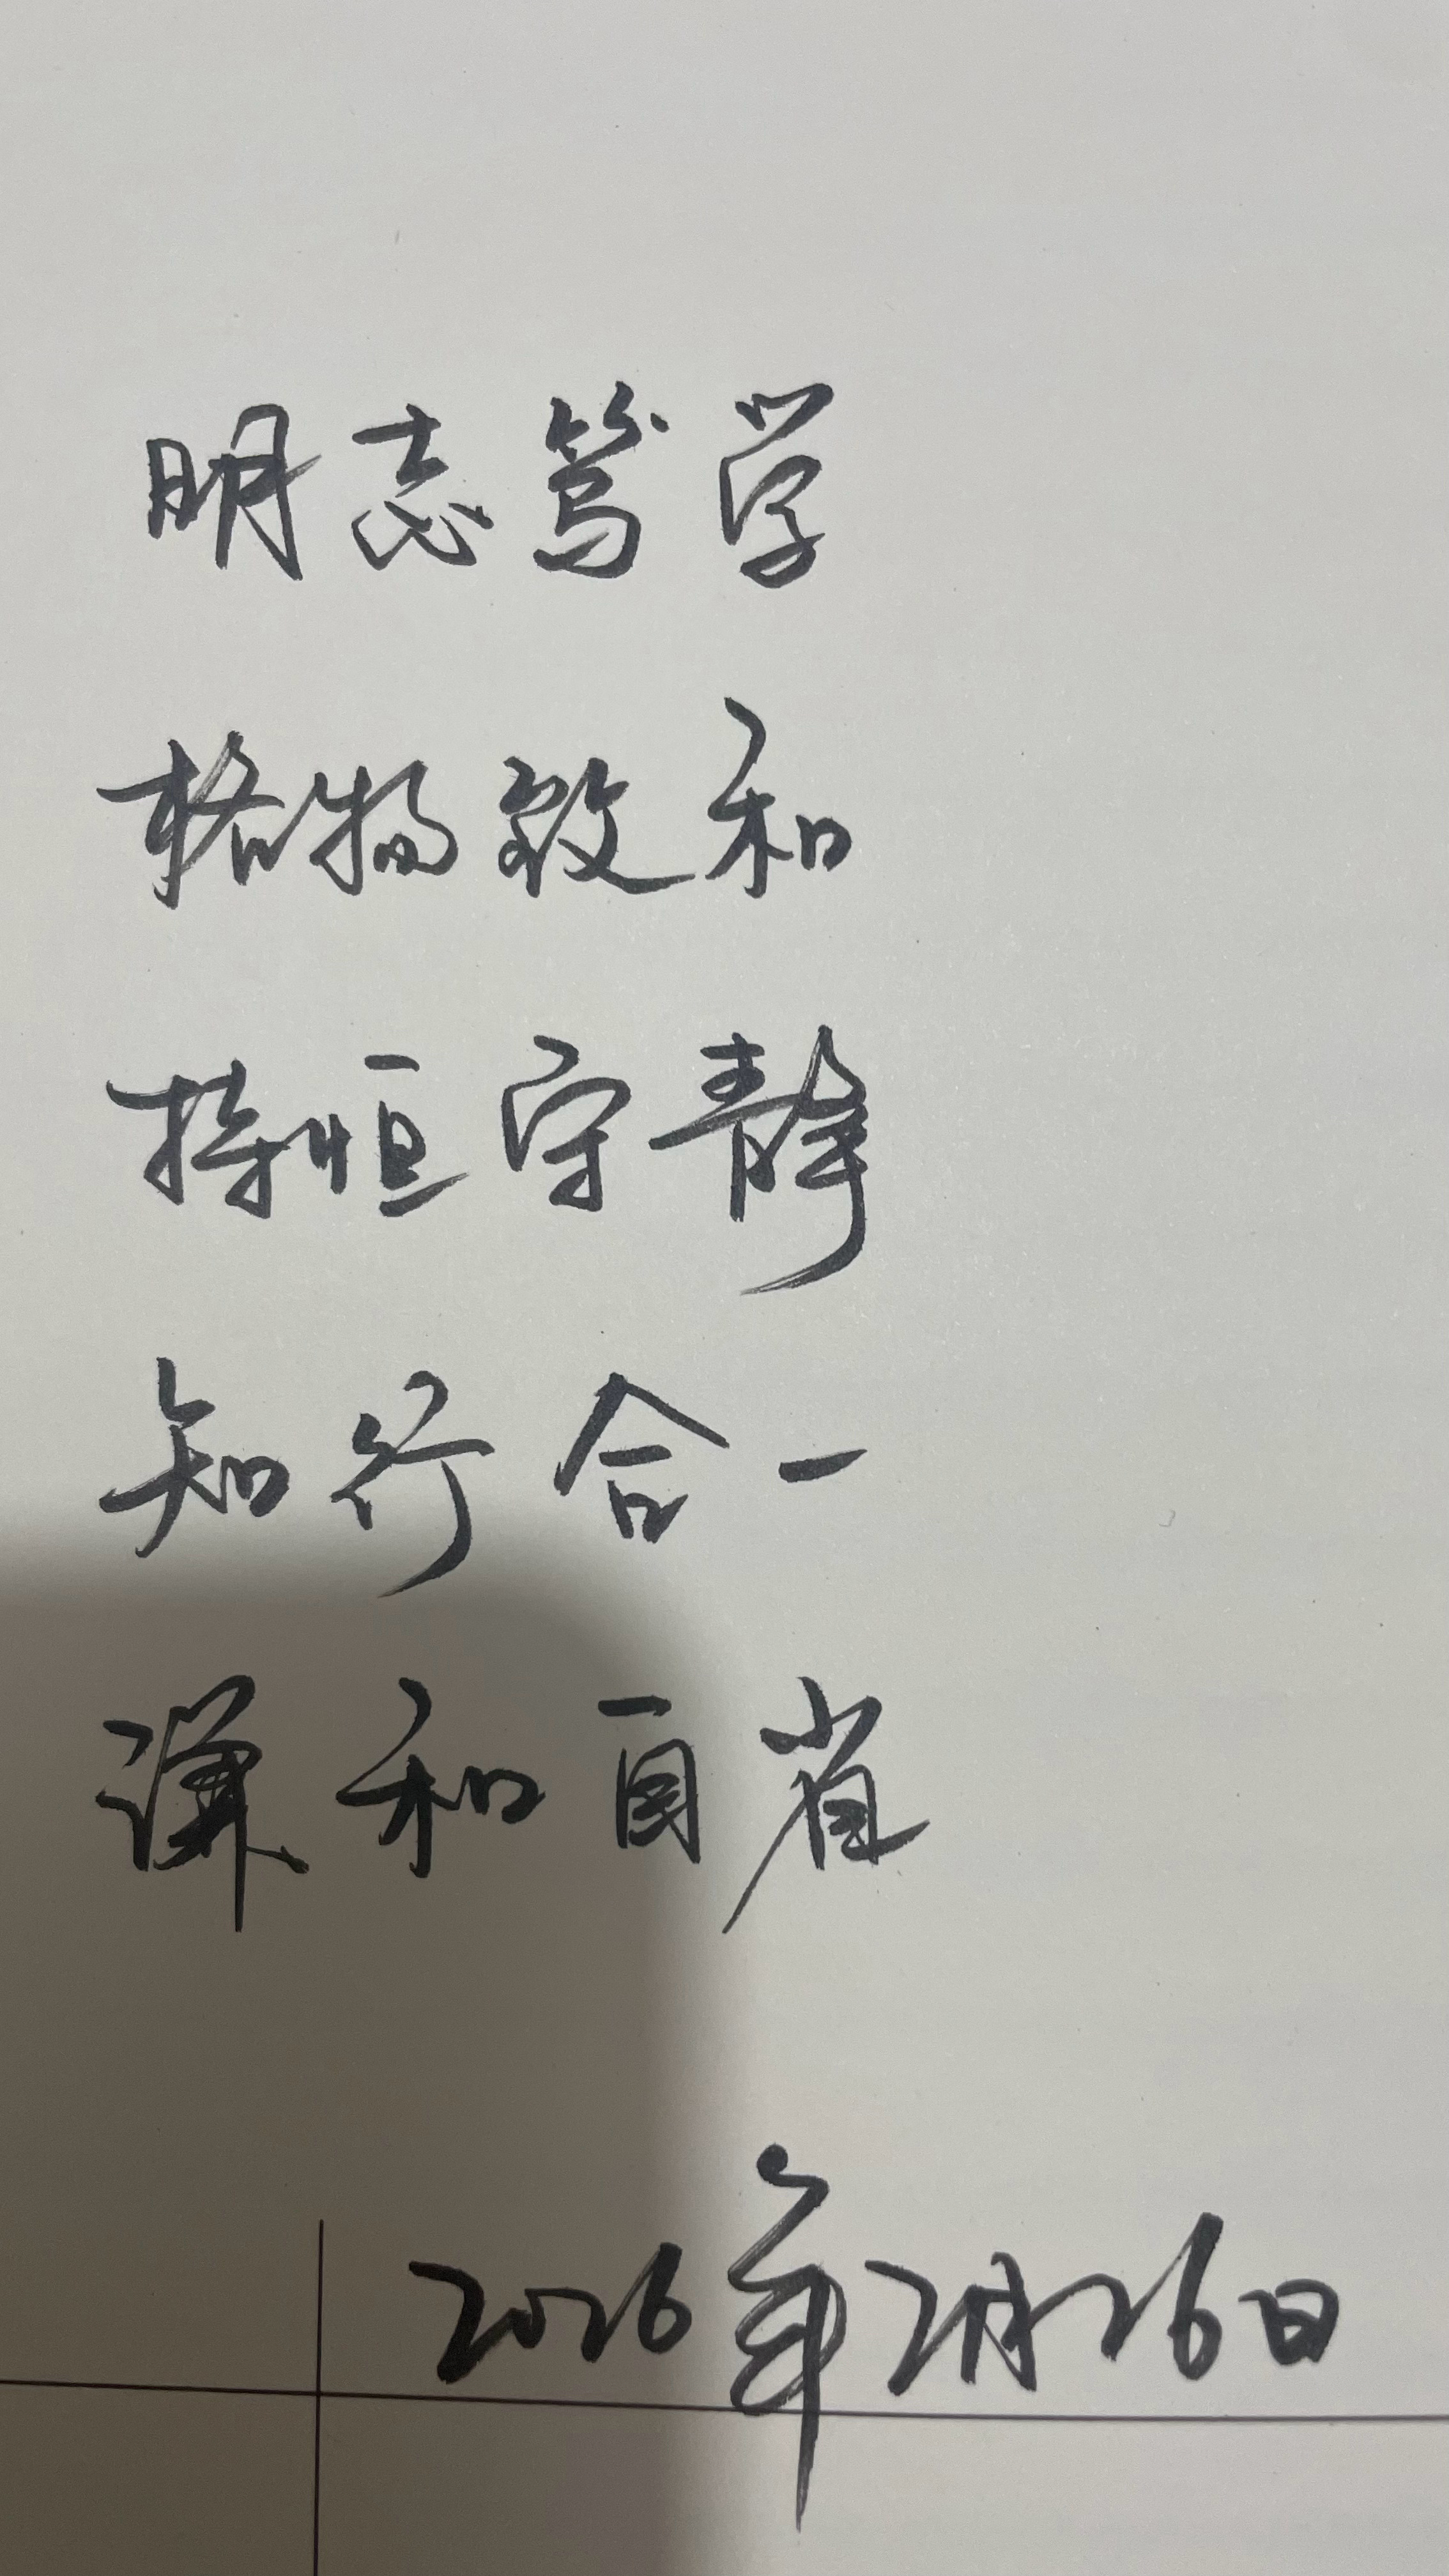 明志笃学
格物致和
持恒守静
知行合一
谦和自省
2026年2月26日